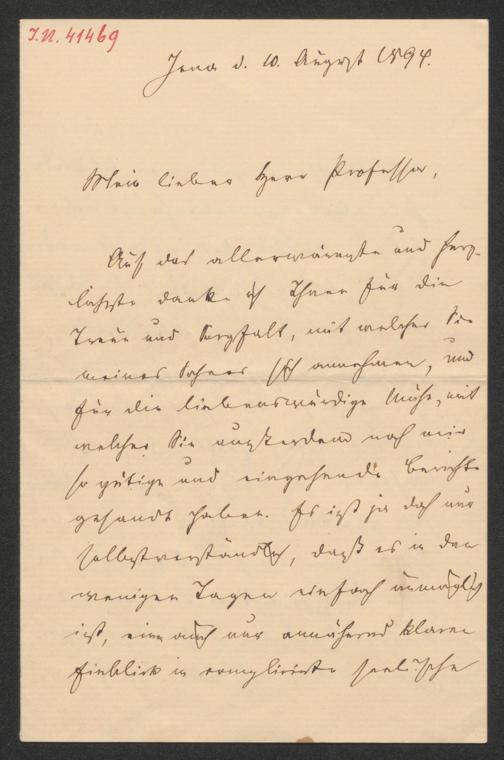 I.N. 41469
Jena d. 10. August 1894.
Mein lieber Herr Professor,
Auf das allerwärmste und herz-
lichste danke ich Ihnen für die
Treue und Sorgfalt, mit welcher Sie
meines Sohnes sich annehmen, und
für die liebenswürdige Mühe, mit
welcher Sie ausserdem noch mir
so gütige und eingehende Berichte
gesandt haben. Es ist ja doch nur
selbstverständlich, dass es in den
wenigen Tagen einfach unmöglich
ist, einen auch nur annähernd klaren
Einblick in complicirte seelische